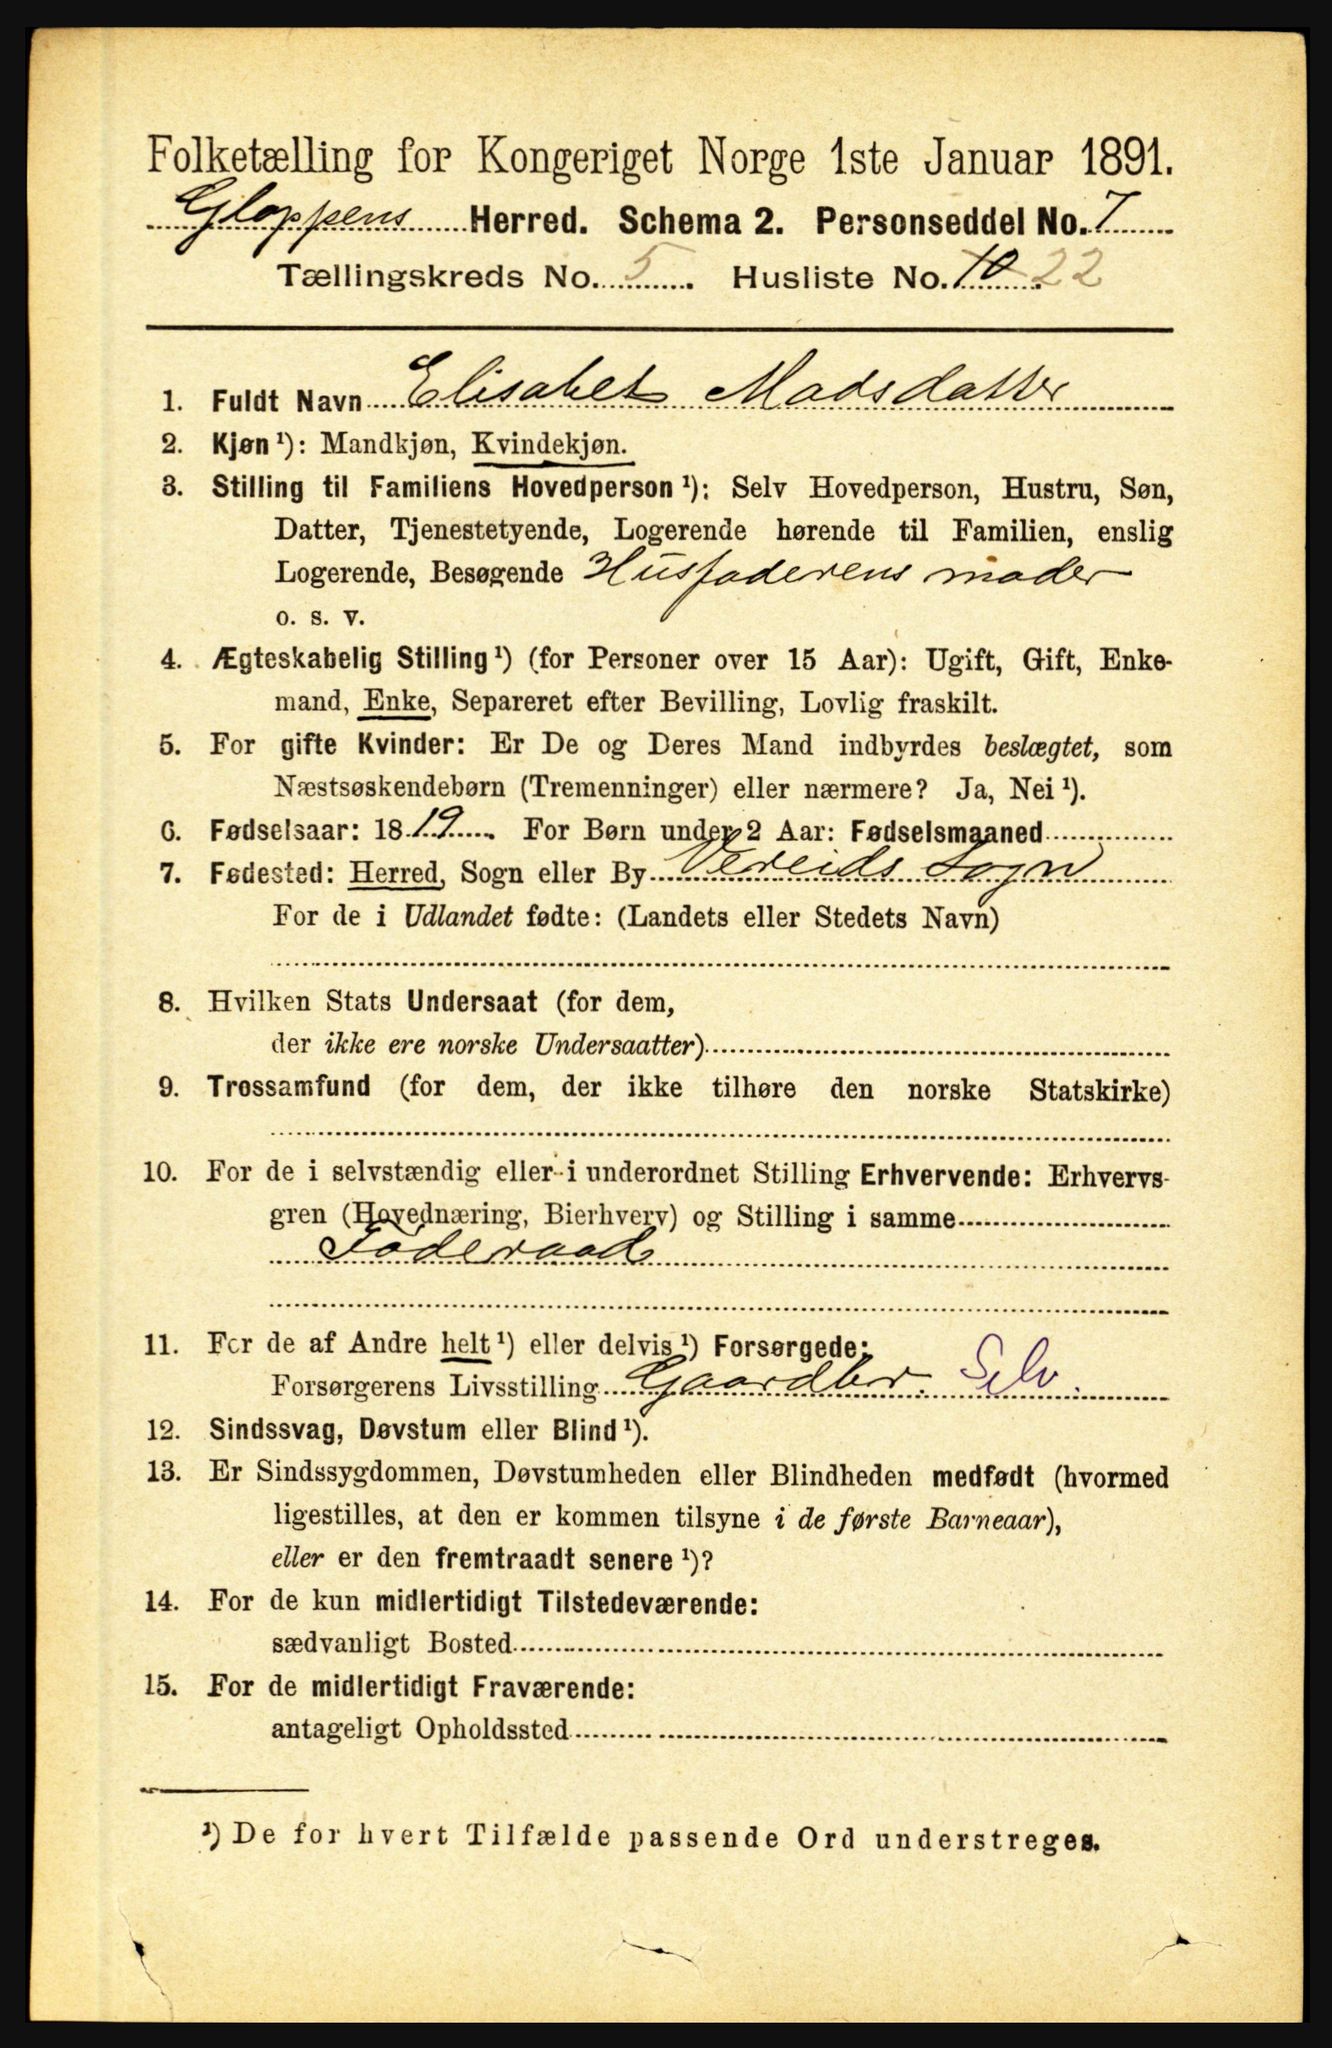 Folketælling for Kongeriget Norge 1ste Januar 1891.
Gloppens Herred. Schema 2. Personseddel No. 7
Tællingskreds No. 5. Husliste No. 10. 22
1. Fuldt Navn Elisabet Madsdatter
2. Kjøn ¹): Mandkjøn, Kvindekjøn.
3. Stilling til Familiens Hovedperson ¹): Selv Hovedperson, Hustru, Søn,
Datter, Tjenestetyende, Logerende hørende til Familien, enslig
Logerende, Besøgende Husfaderens moder
o. s. v.
4. Ægteskabelig Stilling ¹) (for Personer over 15 Aar): Ugift, Gift, Enke-
mand, Enke, Separeret efter Bevilling, Lovlig fraskilt.
5. For gifte Kvinder: Er De og Deres Mand indbyrdes beslægtet, som
Næstsøskendebørn (Tremenninger) eller nærmere? Ja, Nei ¹).
6. Fødselsaar: 1819. For Børn under 2 Aar: Fødselsmaaned
7. Fødested: Herred, Sogn eller By Vereids Sogn
For de i Udlandet fødte: (Landets eller Stedets Navn)
8. Hvilken Stats Undersaat (for dem,
der ikke ere norske Undersaatter)
9. Trossamfund (for dem, der ikke tilhøre den norske Statskirke)
10. For de i selvstændig eller i underordnet Stilling Erhvervende: Erhvervs-
gren (Hovednæring, Bierhverv) og Stilling i samme
Føderaad
11. For de af Andre helt ¹) eller delvis ¹) Forsørgede:
Forsørgerens Livsstilling Gaardbr. Selv.
12. Sindssvag, Døvstum eller Blind ¹).
13. Er Sindssygdommen, Døvstumheden eller Blindheden medfødt (hvormed
ligestilles, at den er kommen tilsyne i de første Barneaar),
eller er den fremtraadt senere ¹)?
14. For de kun midlertidigt Tilstedeværende:
sædvanligt Bosted
15. For de midlertidigt Fraværende:
antageligt Opholdssted
¹) De for hvert Tilfælde passende Ord understreges.